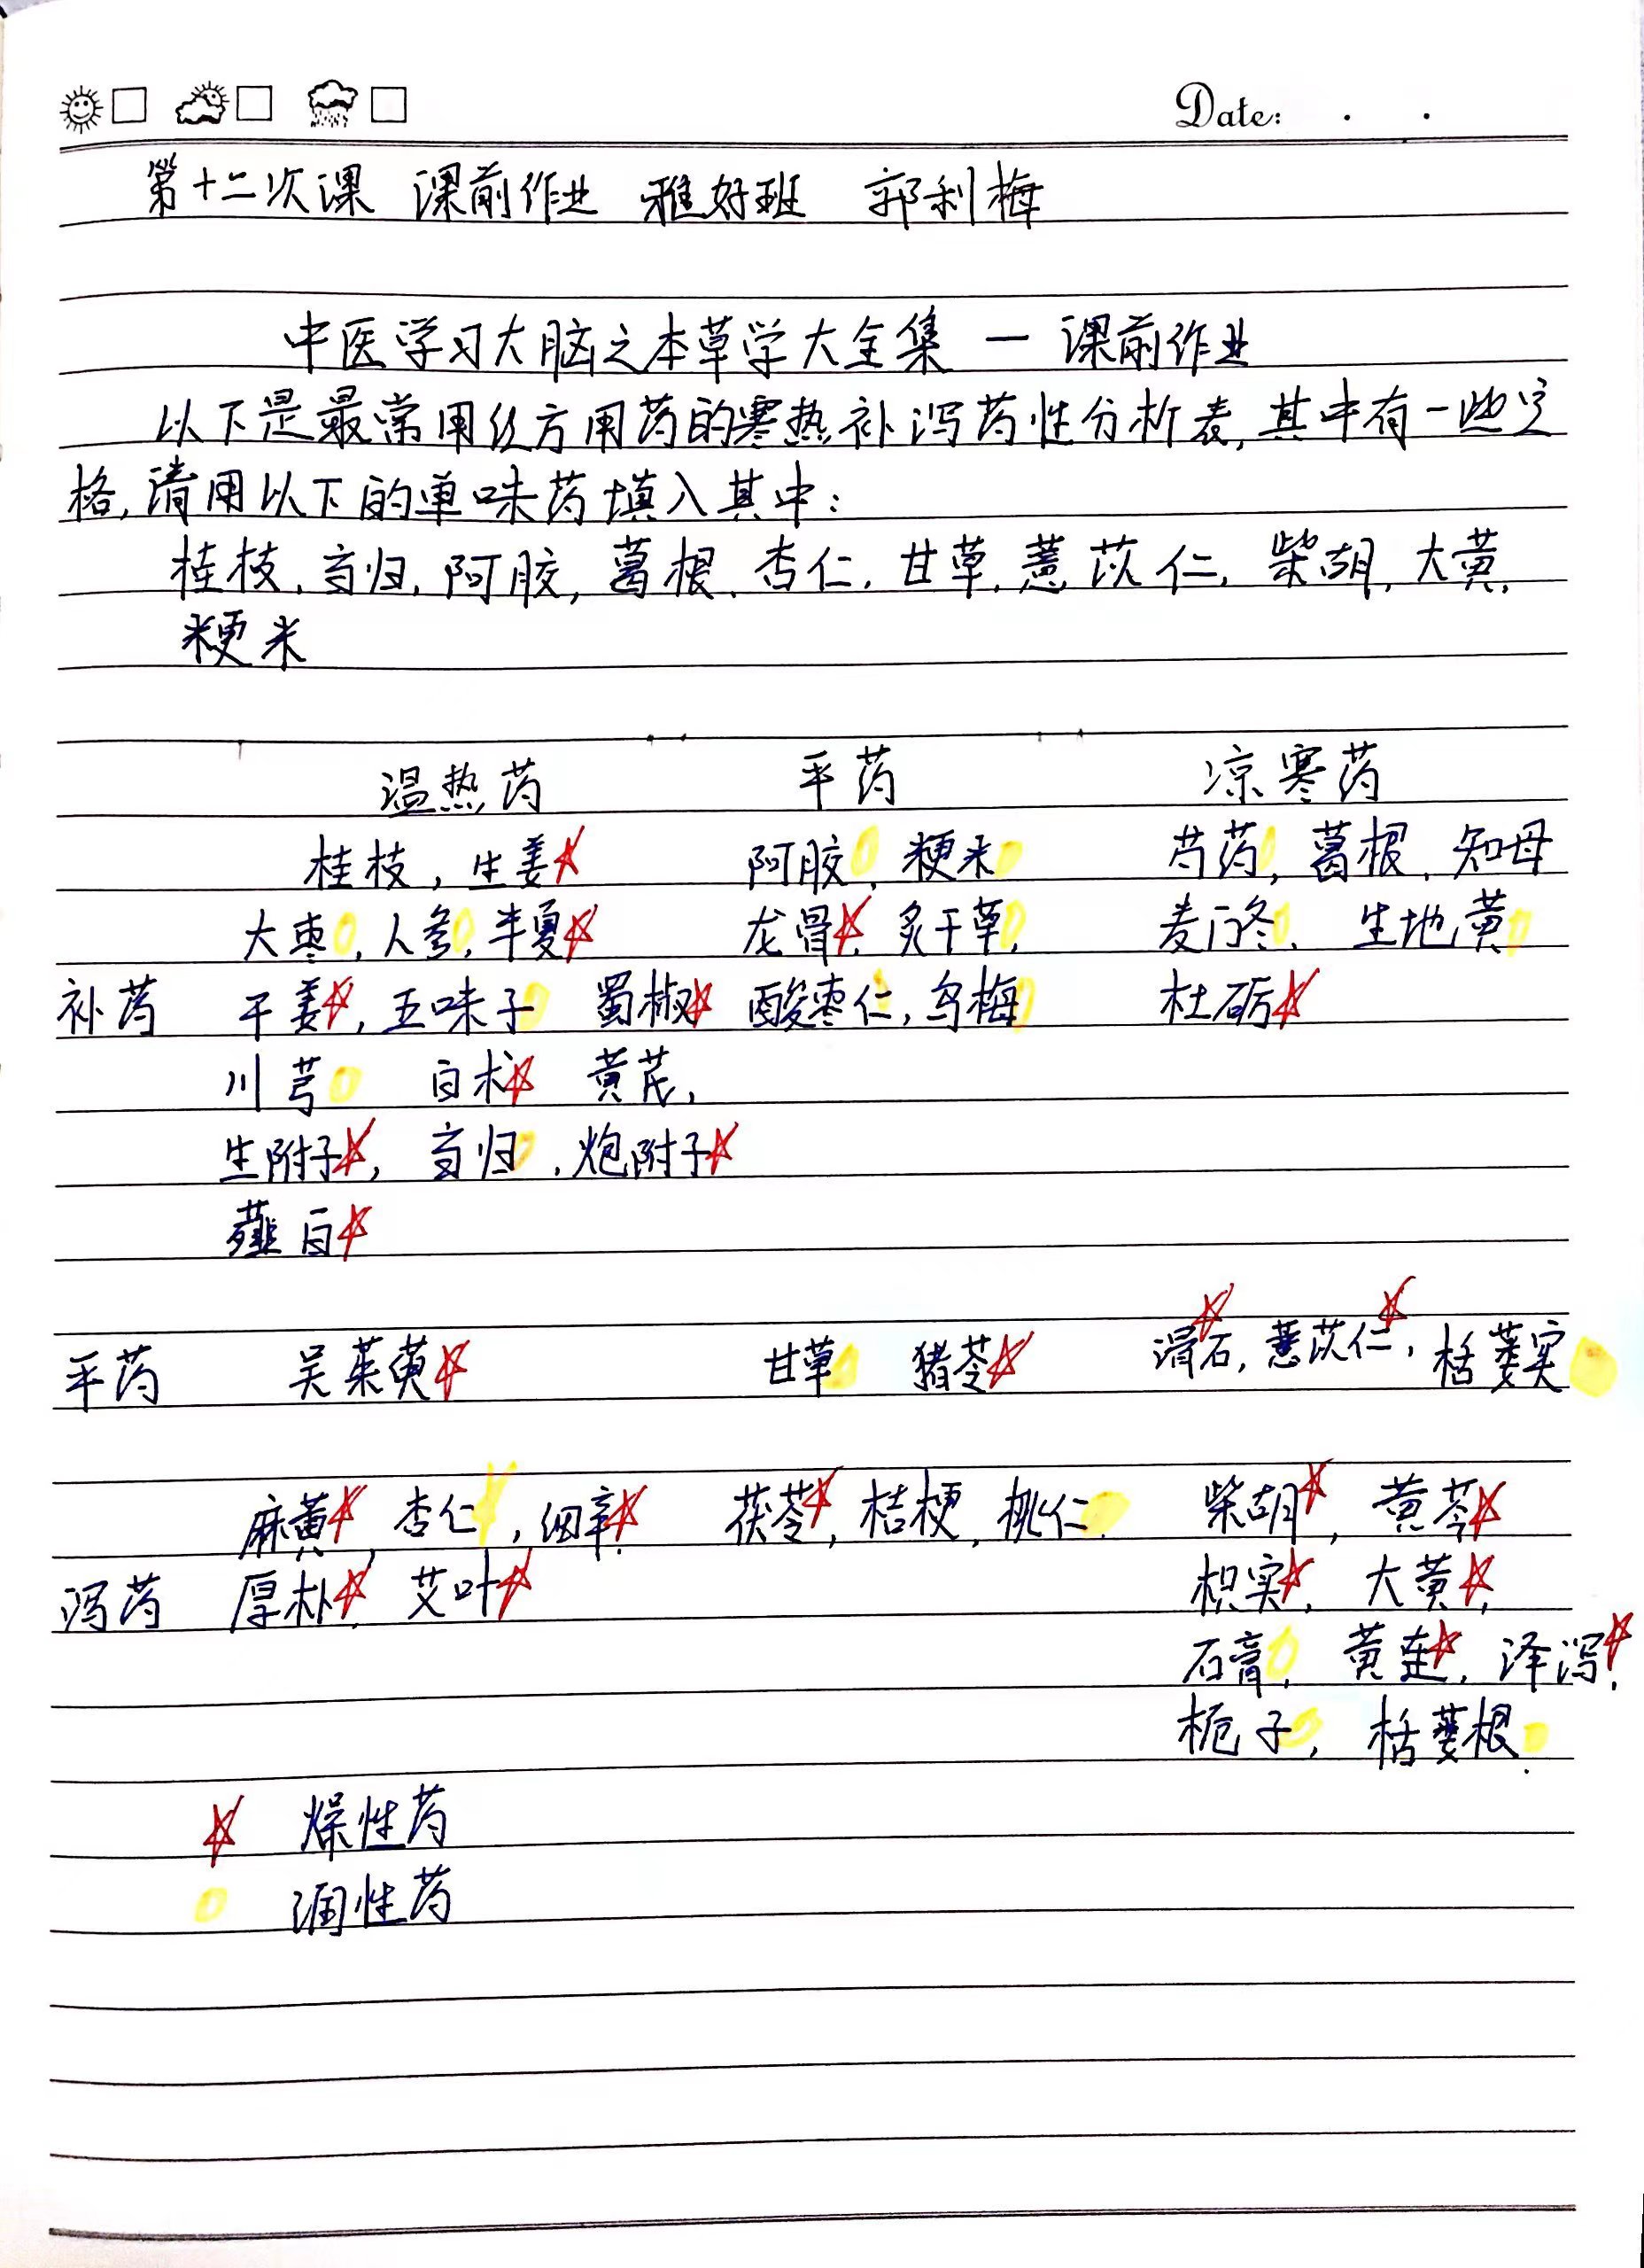 Date: . .
第十二次课 课前作业 雅好班 郭利梅
中医学习大脑之本草学大全集 — 课前作业
以下是最常用经方用药的寒热补泻药性分析表,其中有一些空
格,请用以下的单味药填入其中:
桂枝,当归,阿胶,葛根,杏仁,甘草,薏苡仁,柴胡,大黄,
粳米
温热药 平药 凉寒药
桂枝,生姜 阿胶,粳米 芍药,葛根,知母
大枣,人参,半夏 龙骨,炙干草, 麦门冬,生地黄
补药 干姜,五味子 蜀椒 酸枣仁,乌梅 杜砺
川芎 白术 黄芪,
生附子,当归,炮附子
薤白
平药 吴茱萸 甘草 猪苓 滑石,薏苡仁,栝蒌实
麻黄,杏仁,细辛, 茯苓,桔梗,桃仁, 柴胡,黄芩
泻药 厚朴,艾叶 枳实,大黄,
石膏,黄连,泽泻,
栀子,栝蒌根.
燥性药
润性药